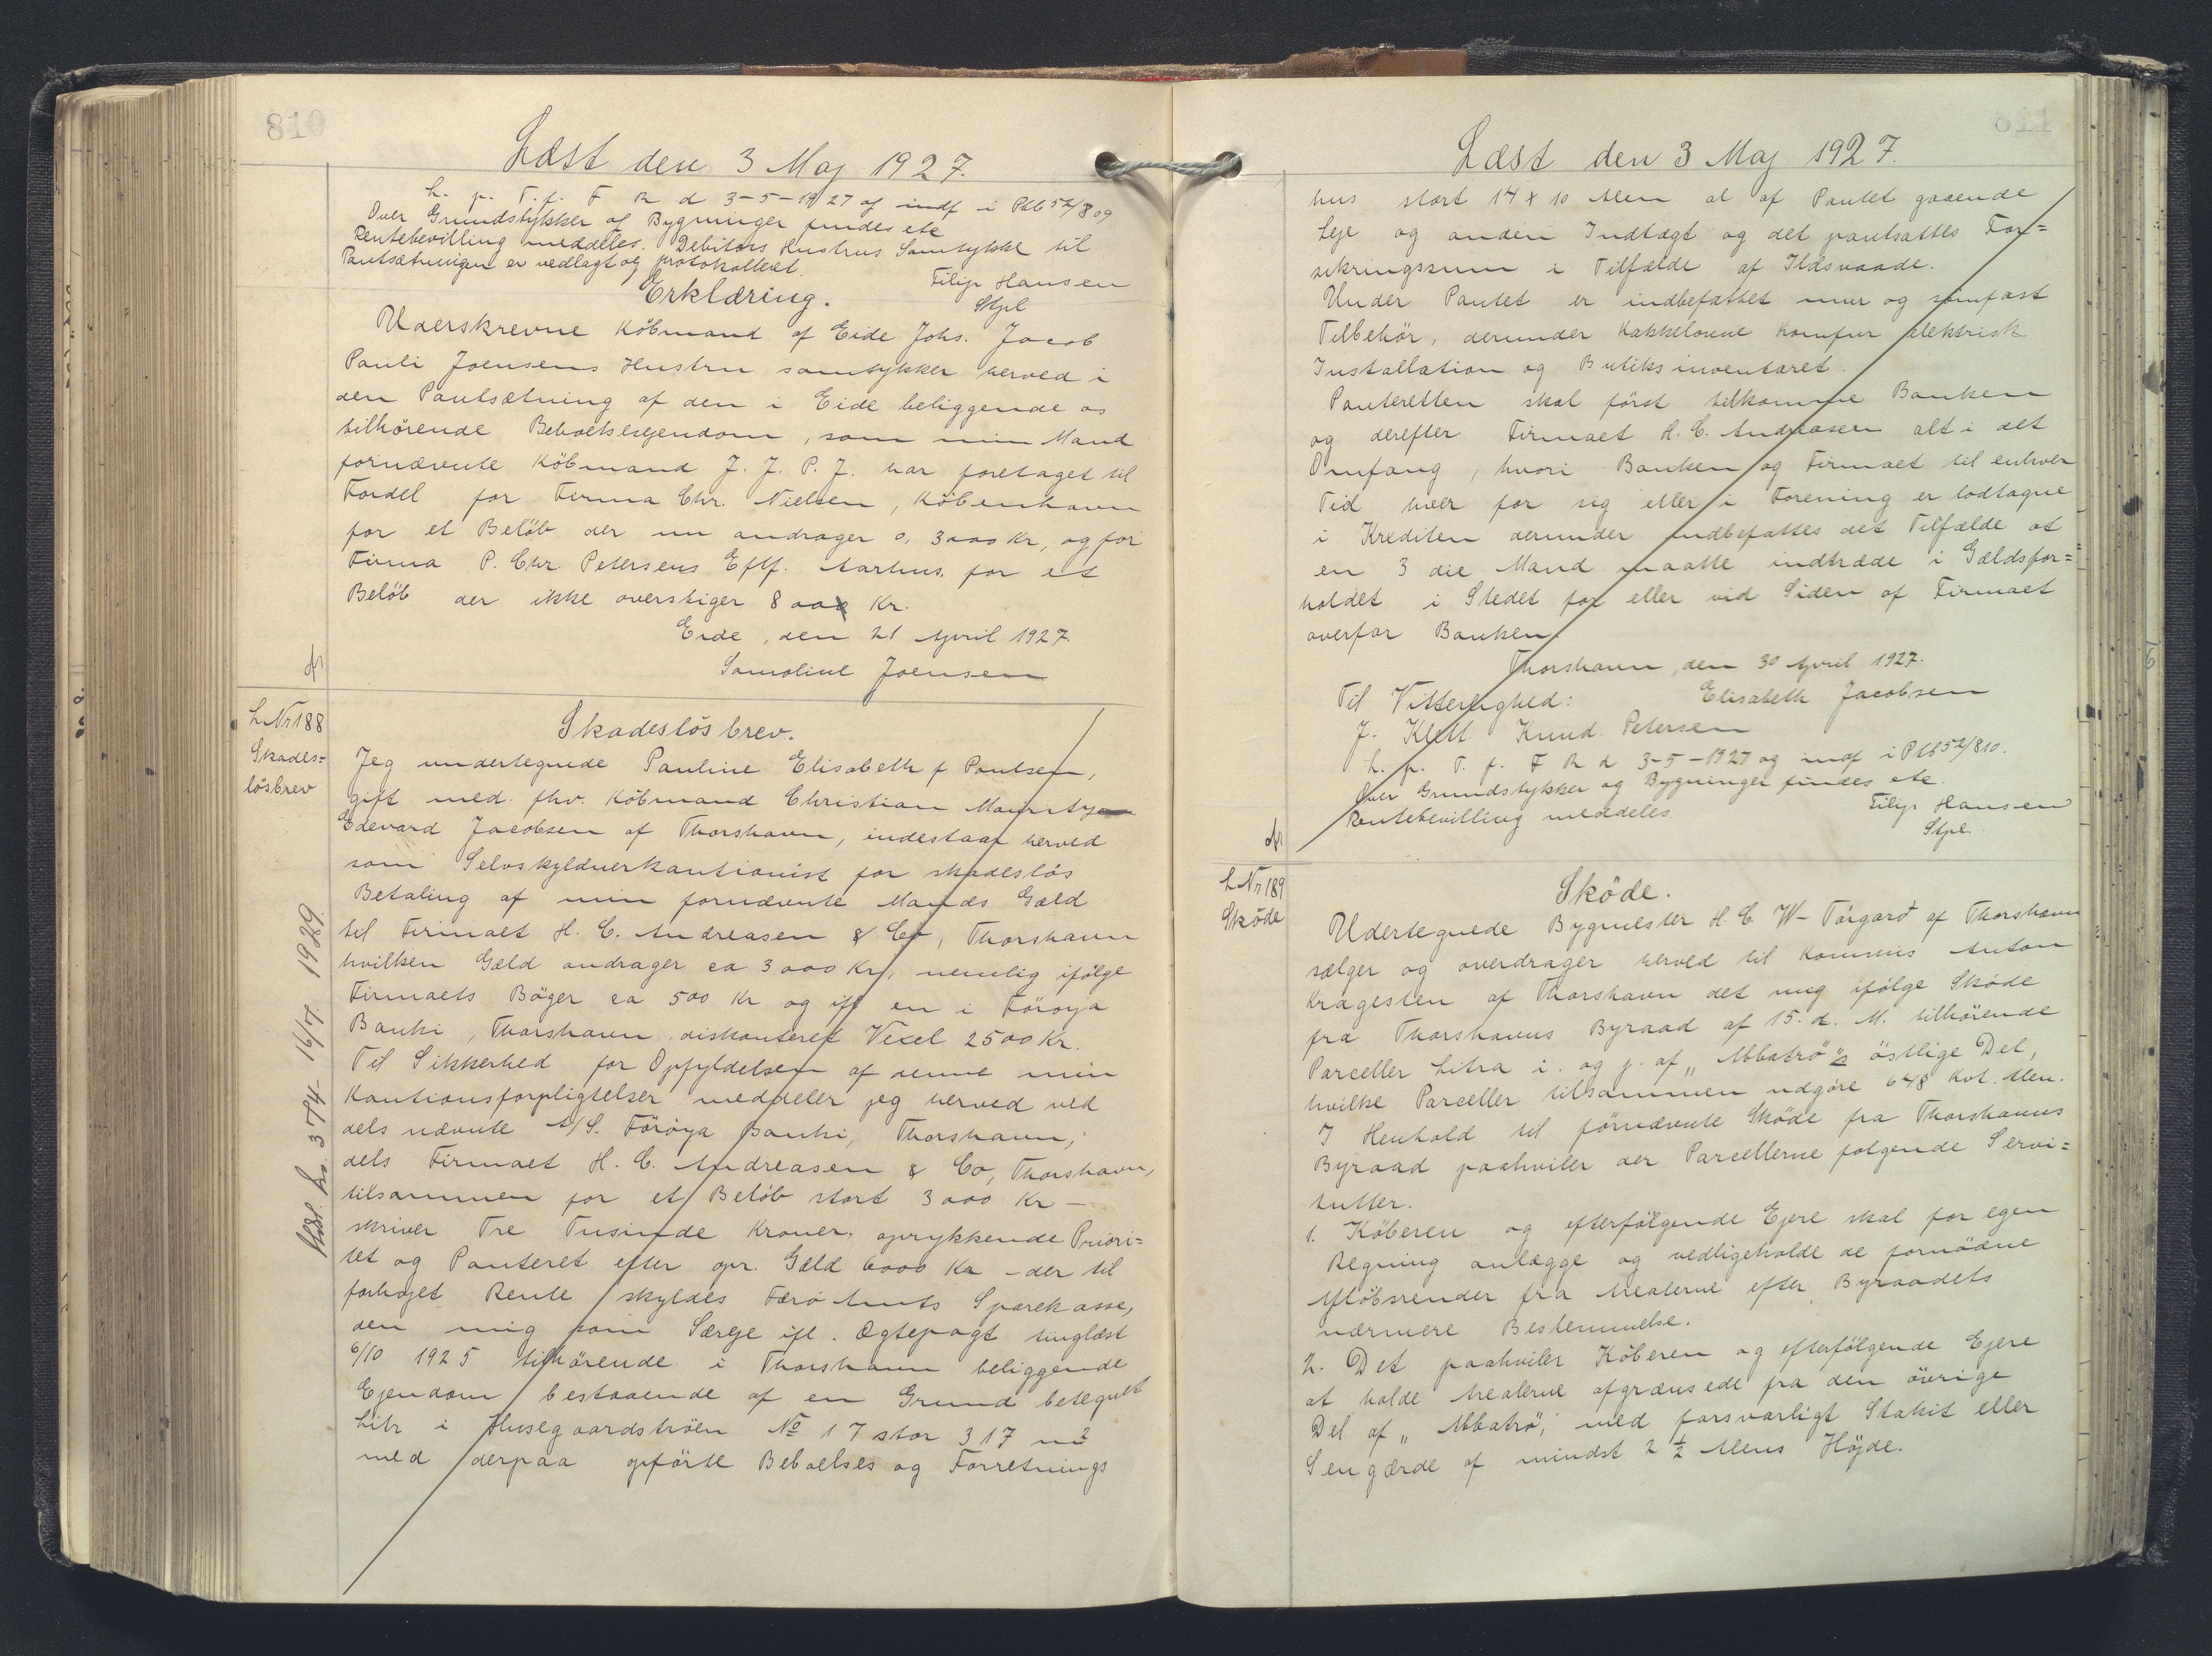 810
Læst den 3 Maj 1927.
L. p. T. f. F R d 3-5-1927 og indf i Ptb 52/809
Over Grundstykker og Bygninger findes etc
Rentebevilling meddeles. Debitors Hustrus Samtykke til
Pantsætningen er vedlagt og protokolleret.
Filip Hansen
Stpl
Erklæring.
Uderskrevne Købmand af Eide Johs. Jacob
Pauli Joensens Hustru samtykker herved i
den Pantsætning af den i Eide beliggende os
tilhörende Beboelsesejendom, som min Mand
fornævnte Købmand J. J. P. J. har foretaget til
Fordel for Firma Chr. Nielsen, København
for et Beløb der nu andrager o. 3000 Kr, og for
Firma P. Chr. Petersens Eftf. Aarhus. for et
Beløb der ikke overstiger 8000 Kr.
Eide, den 21 April 1927
Samoline Joensen
L Nr 188
Skades=
løsbrev
Skadesløsbrev.
Jeg undertegnede Pauline Elisabeth f Poulsen,
gift med. fhv. Købmand Christian Mauritz
Edevard Jacobsen af Thorshavn, indestaar herved
som Selvskyldnerkautionist for skadesløs
Betaling af min fornævnte Mands Gæld
til Firmaet H. C. Andreasen & Co, Thorshavn
hvilken Gæld andrager ca 3000 Kr, nemlig ifølge
Firmaets Bøger ca 500 Kr og ifl en i Föroya
Banki, Thorshavn diskonteret Vexel 2500 Kr.
Til Sikkerhed for Opfyldelsen af denne min
Kautionsforpligtelser meddeler jeg herved ved
dels nævnte A/S. Föröya Banki, Thorshavn,
dels Firmaet H. C. Andreasen & Co, Thorshavn,
tilsammen for et Beløb stort 3000 Kr -
skriver Tre Tusinde Kroner, oprykkende Priori=
tet og Panteret efter opr. Gæld 6000 Kr - der til
forhøjet Rente skyldes Færø Amts Sparekasse,
den mig som Særeje ifl. Ægtepagt tinglæst
6/10 1925 tilhörende i Thorshavn beliggende
Ejendom bestaaende af en Grund betegnet
Litr i Husegaardströen № 17 stor 317 m2
med derpaa opförte Beboelses og Forretnings
Udsl. Lr. 374 - 16/7 1929.
811
Læst den 3 Maj 1927.
hus stort 14 x 10 Alen al af Pantet gaaende
Leje og anden Indtægt og det pantsattes For=
sikringssum i Tilfælde af Ildsvaade.
Under Pantet er indbefattet mur og sömfast
Tilbehör, derunder Kakkelovne Komfur elektrisk
Installation og Butiksinventaret.
Panteretten skal først tilkomme Banken
og derefter Firmaet H. C. Andreasen alt i det
Omfang, hvori Banken og Firmaet til enhver
Tid hver for sig eller i Forening er lodtagne
i Krediten derunder indbefattes det Tilfælde at
en 3 die Mand maatte indtræde i Gældsfor=
holdet i Stedet for eller ved Siden af Firmaet
overfor Banken.
Thorshavn, den 30 April 1927.
Til Vitterlighed: Elisabeth Jacobsen
J. Klett. Knud. Petersen
L. p. T. f. F R d 3-5-1927 og indf i Ptb 52/810.
Over Grundstykker og Bygninger findes etc.
Rentebevilling meddeles. Filip Hansen
Stpl
L Nr 189
Sköde
Sköde.
Udertegnede Bygmester H. C. W- Tórgarð af Thorshavn
sælger og overdrager herved til Kommis Anton
Kragesten af Thorshavn det mig ifølge Sköde
fra Thorshavns Byraad af 15. d. M. tilhörende
Parceller Litra i. og j. af „Abbatrö"s östlige Del,
hvilke Parceller tilsammen udgöre 648 Kvt. Alen.
I Henhold til førnævnte Sköde fra Thorshavns
Byraad paahviler der Parcellerne følgende Servi=
tutter.
1. Køberen og efterfølgende Ejere skal for egen
Regning anlægge og vedligeholde de fornödne
Afløbsrender fra Arealerne efter Byraadets
nærmere Bestemmelse.
2. Det paahviler Köberen og efterfølgende Ejere
at holde Arealerne afgrænsede fra den övrige
Del af „Abbatrö", med forsvarligt Stakit eller
Stengærde af mindst 2 1/2 Alens Höjde.